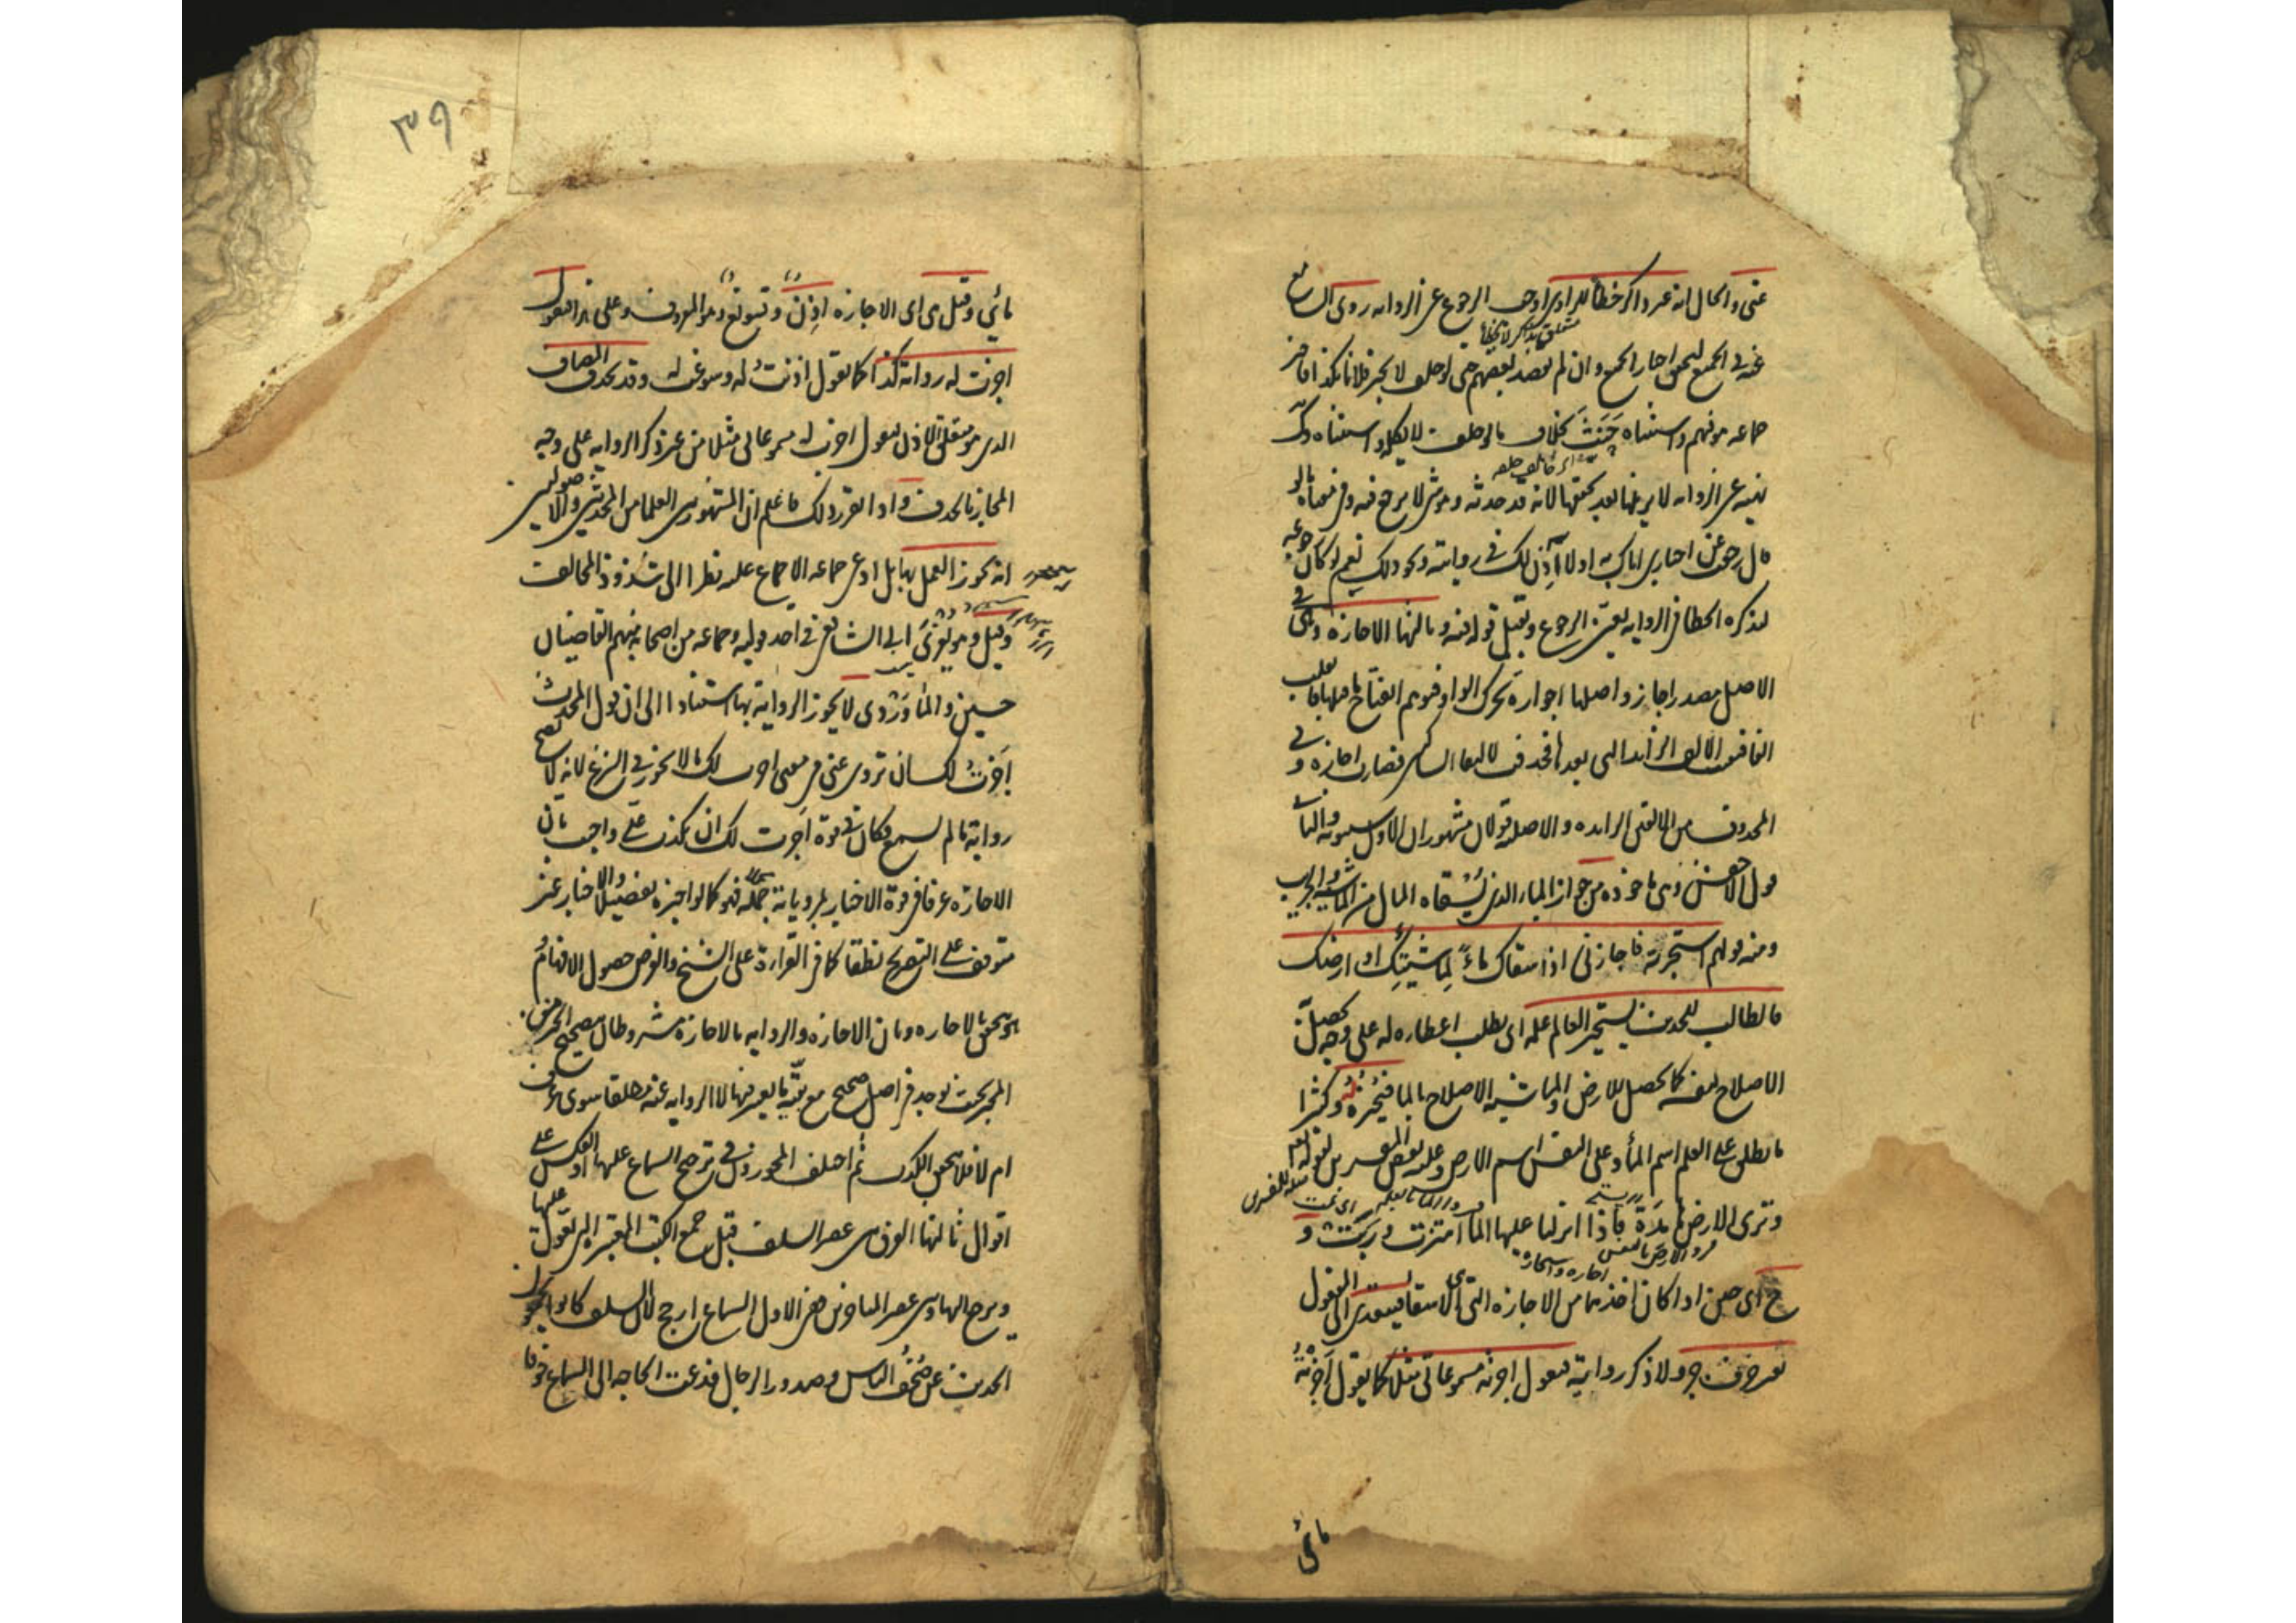 عنى والحال انه غير ذاكر خطأ للراوى اوجب الرجوع عن الروايه روى السامع
متعلق بذاكر لا بخطأ
عنه فى الجمع ليحقق اخبار الجميع وان لم يقصد بعضهم حتى لو حلف لا يخبر فلانا بكذا فاخبر
جماعه هو فيهم واستثناه حَنِثَ بخلاف ما لو حلف لا يكلم واستثناه
اى خالف حلفه
نهيه عن الروايه لا يزيلها بعد تحققها لانه قد حدثه وهو شى لا يرجع فيه وفى معناه ما لو
قال رجعت عن اخبارى اياك به او لا آذن لك فى روايته ونحو ذلك نعم لو كان رجوعه
لتذكره الخطا فى الروايه تعين الرجوع وقبل قوله فيه وثالثها الاجازه وهى فى
الاصل مصدر اجاز واصلها اجوازه تحرك الواو فتوهم انفتاح ما قبلها فانقلبت
الفا فبقيت الالف الزائده التى بعدها فحذفت لالتقاء الساكنين فصارت اجازه وفى
المحذوف من الالفين الزايده والاصليه قولان مشهوران الاول قول سيبويه والثانى
قول الاخفش وهى ماخوذه من جواز الماء الذى يُسْقاه المال من الماشيه والحرث
ومنه قولهم استجزته فاجازنى اذا سقاك ماءً لِماشيتِك او ارضك
فالطالب للحديث يستجيز العالم علمه اى يطلب اعطاءه له على وجه يحصل
الاصلاح لنفسه كما يحصل للارض والماشيه الاصلاح بالماء فيُجيزهُ وكثيرا
ما يطلق على العلم اسم الماء وعلى النفس اسم الارض وعليه بعض المفسرين لقوله تعم
وترى الارض هامِدَةً فاذا انزلنا عليها الماء اهتزت ورَبَتْ و
ح اى حين اذا كان اخذها من الاجازه التى هى الاسقاء يتعدى الى المفعول
بغير حرف جر ولا ذكر روايه فيقول اجزته مسموعاتى مثلا كما يقول اَجَزْتُهُ
مائى
٣٩
مائى وقيل هى اى الاجازه اِذن وتسويغ وهو المعروف وعلى هذا فيقول
اجزت له روايه كذا كما يقول اذنتُ له وسوغت له وقد يحذف المضاف
الذى هو متعلق الاذن فيقول اجزت له مسموعاتى مثلا من غير ذكر الروايه على وجه
المجاز بالحذف واذا تقرر ذلك فاعلم ان المشهور بين العلما من المحدثين والاصوليين
انه يجوز العمل بها بل ادعى جماعه الاجماع عليه نظرا الى شذوذ المخالف
وقيل وهو يُعْزى الى الشافعى فى احد قوليه وجماعه من اصحابه منهم القاضيان
حسين والماوَرْدى لا يجوز الروايه بها استنادا الى ان قول المحدث
اَجَزْتُ لك ان تروى عنى فى معنى اجزت لك ما لا يجوز فى الشرع لانه لا يبيح
روايه ما لم يسمع فكان فى قوة اَجَزت لك ان تكذب علىّ واجيب بان
الاجازه عرفا فى قوة الاخبار بمروياته جملةً فهو كما لو اخبره تفصيلا والاخبار غير
متوقف على التصريح نطقا كما فى القراءة على الشيخ والغرض حصول الافهام
وهو يتحقق بالاجازه وبان الاجازه والروايه بالاجازه مشروطتان بتصحيح الخبر من
المجيز بحيث يوجد فى اصل صحيح مع بقيه ما يعتبر فيها لا الروايه عنه مطلقا سوى عرف
ام لا فلا يتحقق الكذب ثم اختلف المجوزون فى ترجيح السماع عليها او العكس على
اقوال ثالثها الفرق بين عصر السلف قبل جمع الكتب المعتبره التى يعول عليها
ويرجع اليها وبين عصر المتاخرين ففى الاول السماع ارجح لان السلف كانوا يجمعون
الحديث عن صُحُفِ الناس وصدور الرجال فدعت الحاجه الى السماع خوفا